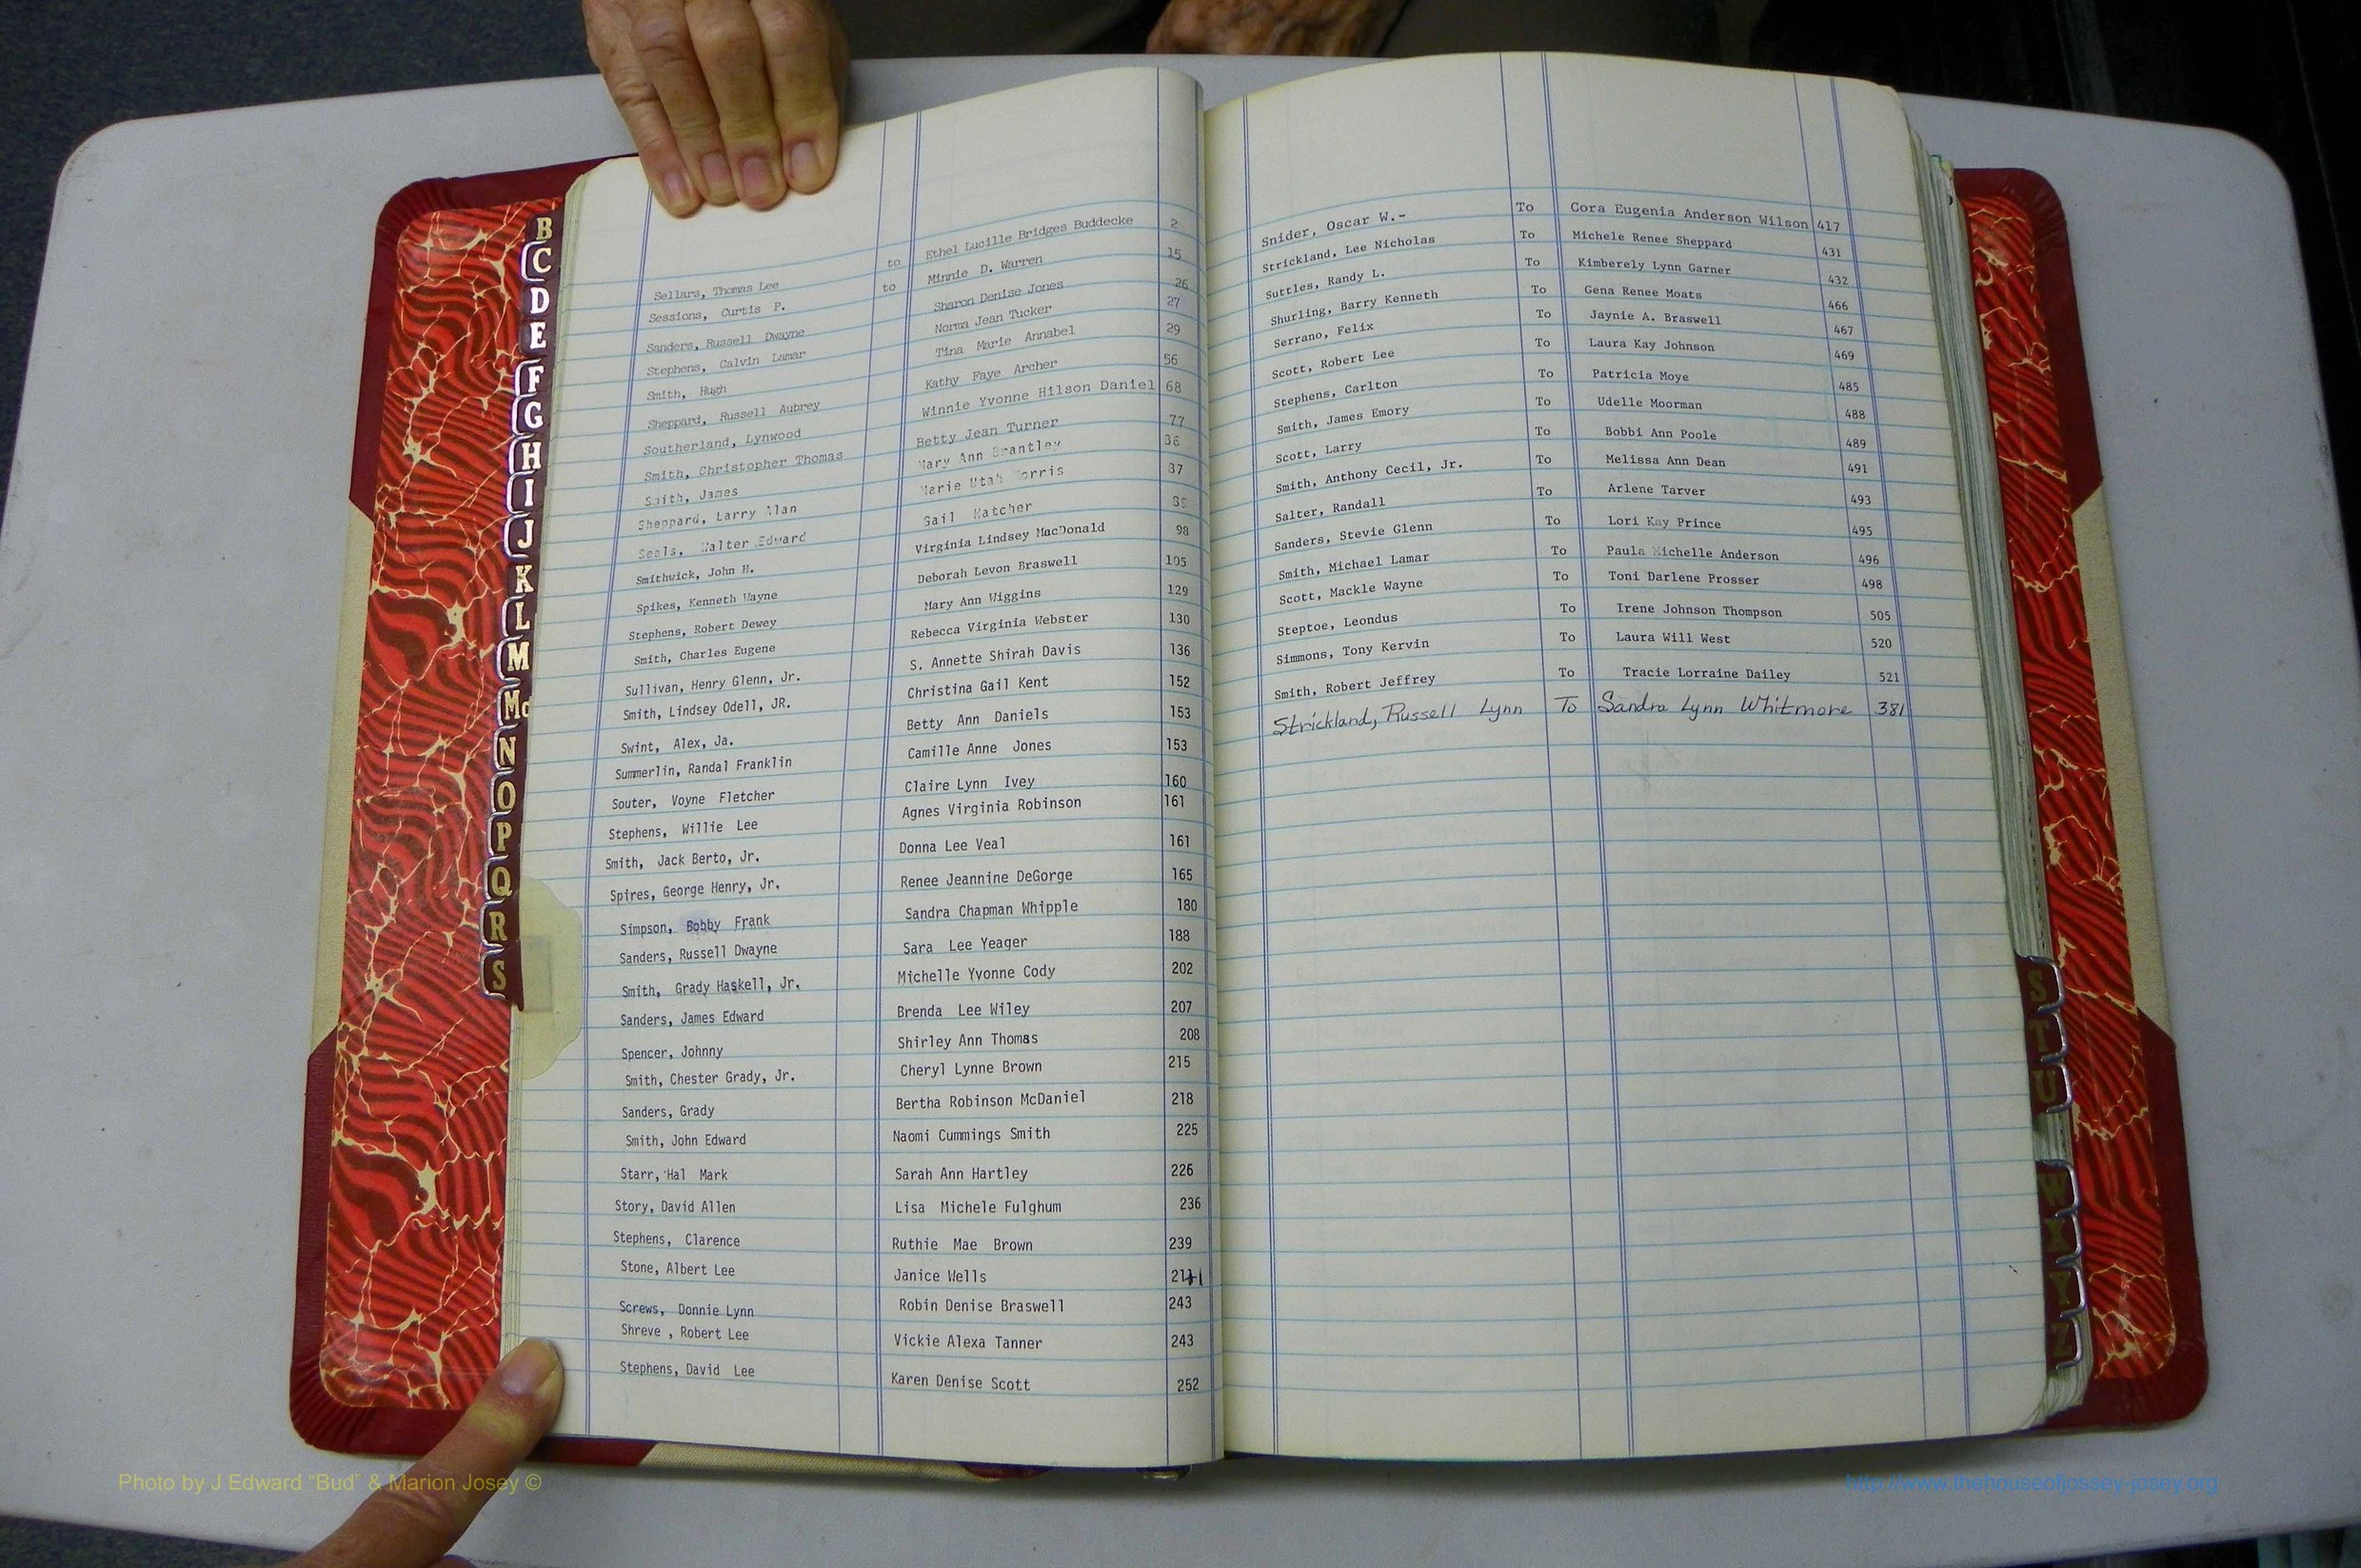 B
C
D
E
F
G
H
I
J
K
L
M
Mc
N
O
P
Q
R
S
Sellars, Thomas Lee to Ethel Lucille Bridges Buddecke 2
Sessions, Curtis P. to Minnie D. Warren 15
Sanders, Russell Dwayne Sharon Denise Jones 26
Stephens, Calvin Lamar Norma Jean Tucker 27
Smith, Hugh Tina Marie Annabel 29
Sheppard, Russell Aubrey Kathy Faye Archer 56
Southerland, Lynwood Winnie Yvonne Hilson Daniel 68
Smith, Christopher Thomas Betty Jean Turner 77
Smith, James Mary Ann Brantley
Sheppard, Larry Alan Marie Utah Morris
Seals, Walter Edward Gail Hatcher
Smithwick, John H. Virginia Lindsey MacDonald 98
Spikes, Kenneth Wayne Deborah Levon Braswell 105
Stephens, Robert Dewey Mary Ann Wiggins 129
Smith, Charles Eugene Rebecca Virginia Webster 130
Sullivan, Henry Glenn, Jr. S. Annette Shirah Davis 136
Smith, Lindsey Odell, JR. Christina Gail Kent 152
Swint, Alex, Ja. Betty Ann Daniels 153
Summerlin, Randal Franklin Camille Anne Jones 153
Souter, Voyne Fletcher Claire Lynn Ivey 160
Stephens, Willie Lee Agnes Virginia Robinson 161
Smith, Jack Berto, Jr. Donna Lee Veal 161
Spires, George Henry, Jr. Renee Jeannine DeGorge 165
Simpson, Bobby Frank Sandra Chapman Whipple 180
Sanders, Russell Dwayne Sara Lee Yeager 188
Smith, Grady Haskell, Jr. Michelle Yvonne Cody 202
Sanders, James Edward Brenda Lee Wiley 207
Spencer, Johnny Shirley Ann Thomas 208
Smith, Chester Grady, Jr. Cheryl Lynne Brown 215
Sanders, Grady Bertha Robinson McDaniel 218
Smith, John Edward Naomi Cummings Smith 225
Starr, Hal Mark Sarah Ann Hartley 226
Story, David Allen Lisa Michele Fulghum 236
Stephens, Clarence Ruthie Mae Brown 239
Stone, Albert Lee Janice Wells
Screws, Donnie Lynn Robin Denise Braswell 243
Shreve , Robert Lee Vickie Alexa Tanner 243
Stephens, David Lee Karen Denise Scott 252
Snider, Oscar W.- To Cora Eugenia Anderson Wilson 417
Strickland, Lee Nicholas To Michele Renee Sheppard 431
Suttles, Randy L. To Kimberely Lynn Garner 432
Shurling, Barry Kenneth To Gena Renee Moats 466
Serrano, Felix To Jaynie A. Braswell 467
Scott, Robert Lee To Laura Kay Johnson 469
Stephens, Carlton To Patricia Moye 485
Smith, James Emory To Udelle Moorman 488
Scott, Larry To Bobbi Ann Poole 489
Smith, Anthony Cecil, Jr. To Melissa Ann Dean 491
Salter, Randall To Arlene Tarver 493
Sanders, Stevie Glenn To Lori Kay Prince 495
Smith, Michael Lamar To Paula Michelle Anderson 496
Scott, Mackle Wayne To Toni Darlene Prosser 498
Steptoe, Leondus To Irene Johnson Thompson 505
Simmons, Tony Kervin To Laura Will West 520
Smith, Robert Jeffrey To Tracie Lorraine Dailey 521
Strickland, Russell Lynn To Sandra Lynn Whitmore 381
S
T
U
W
X
Y
Z
Photo by J Edward “Bud” & Marion Josey ©
http://www.thehouseofjossey-josey.org